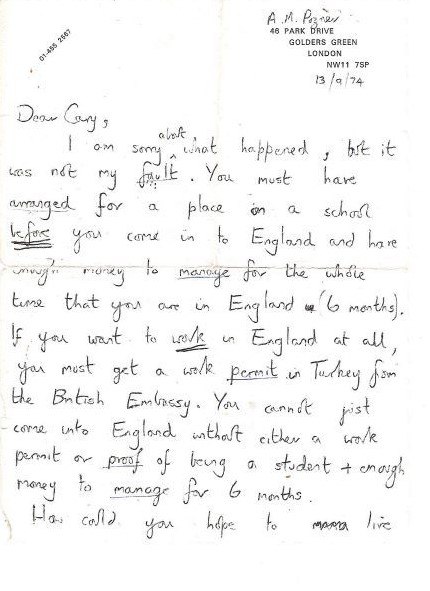 01-455 2567
A. M. Poznér
46 PARK DRIVE
GOLDERS GREEN
LONDON
NW11 7SP
13/9/74
Dear Cary,
I am sorry about what happened, but it
was not my fault. You must have
arranged for a place in a school
before you come in to England and have
enough money to manage for the whole
time that you are in England (6 months).
If you want to work in England at all,
you must get a work permit in Turkey from
the British Embassy. You cannot just
come into England without either a work
permit or proof of being a student + enough
money to manage for 6 months.
How could you hope to live